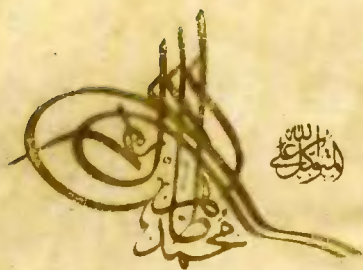 محمد طاهر
المتوكل على الله